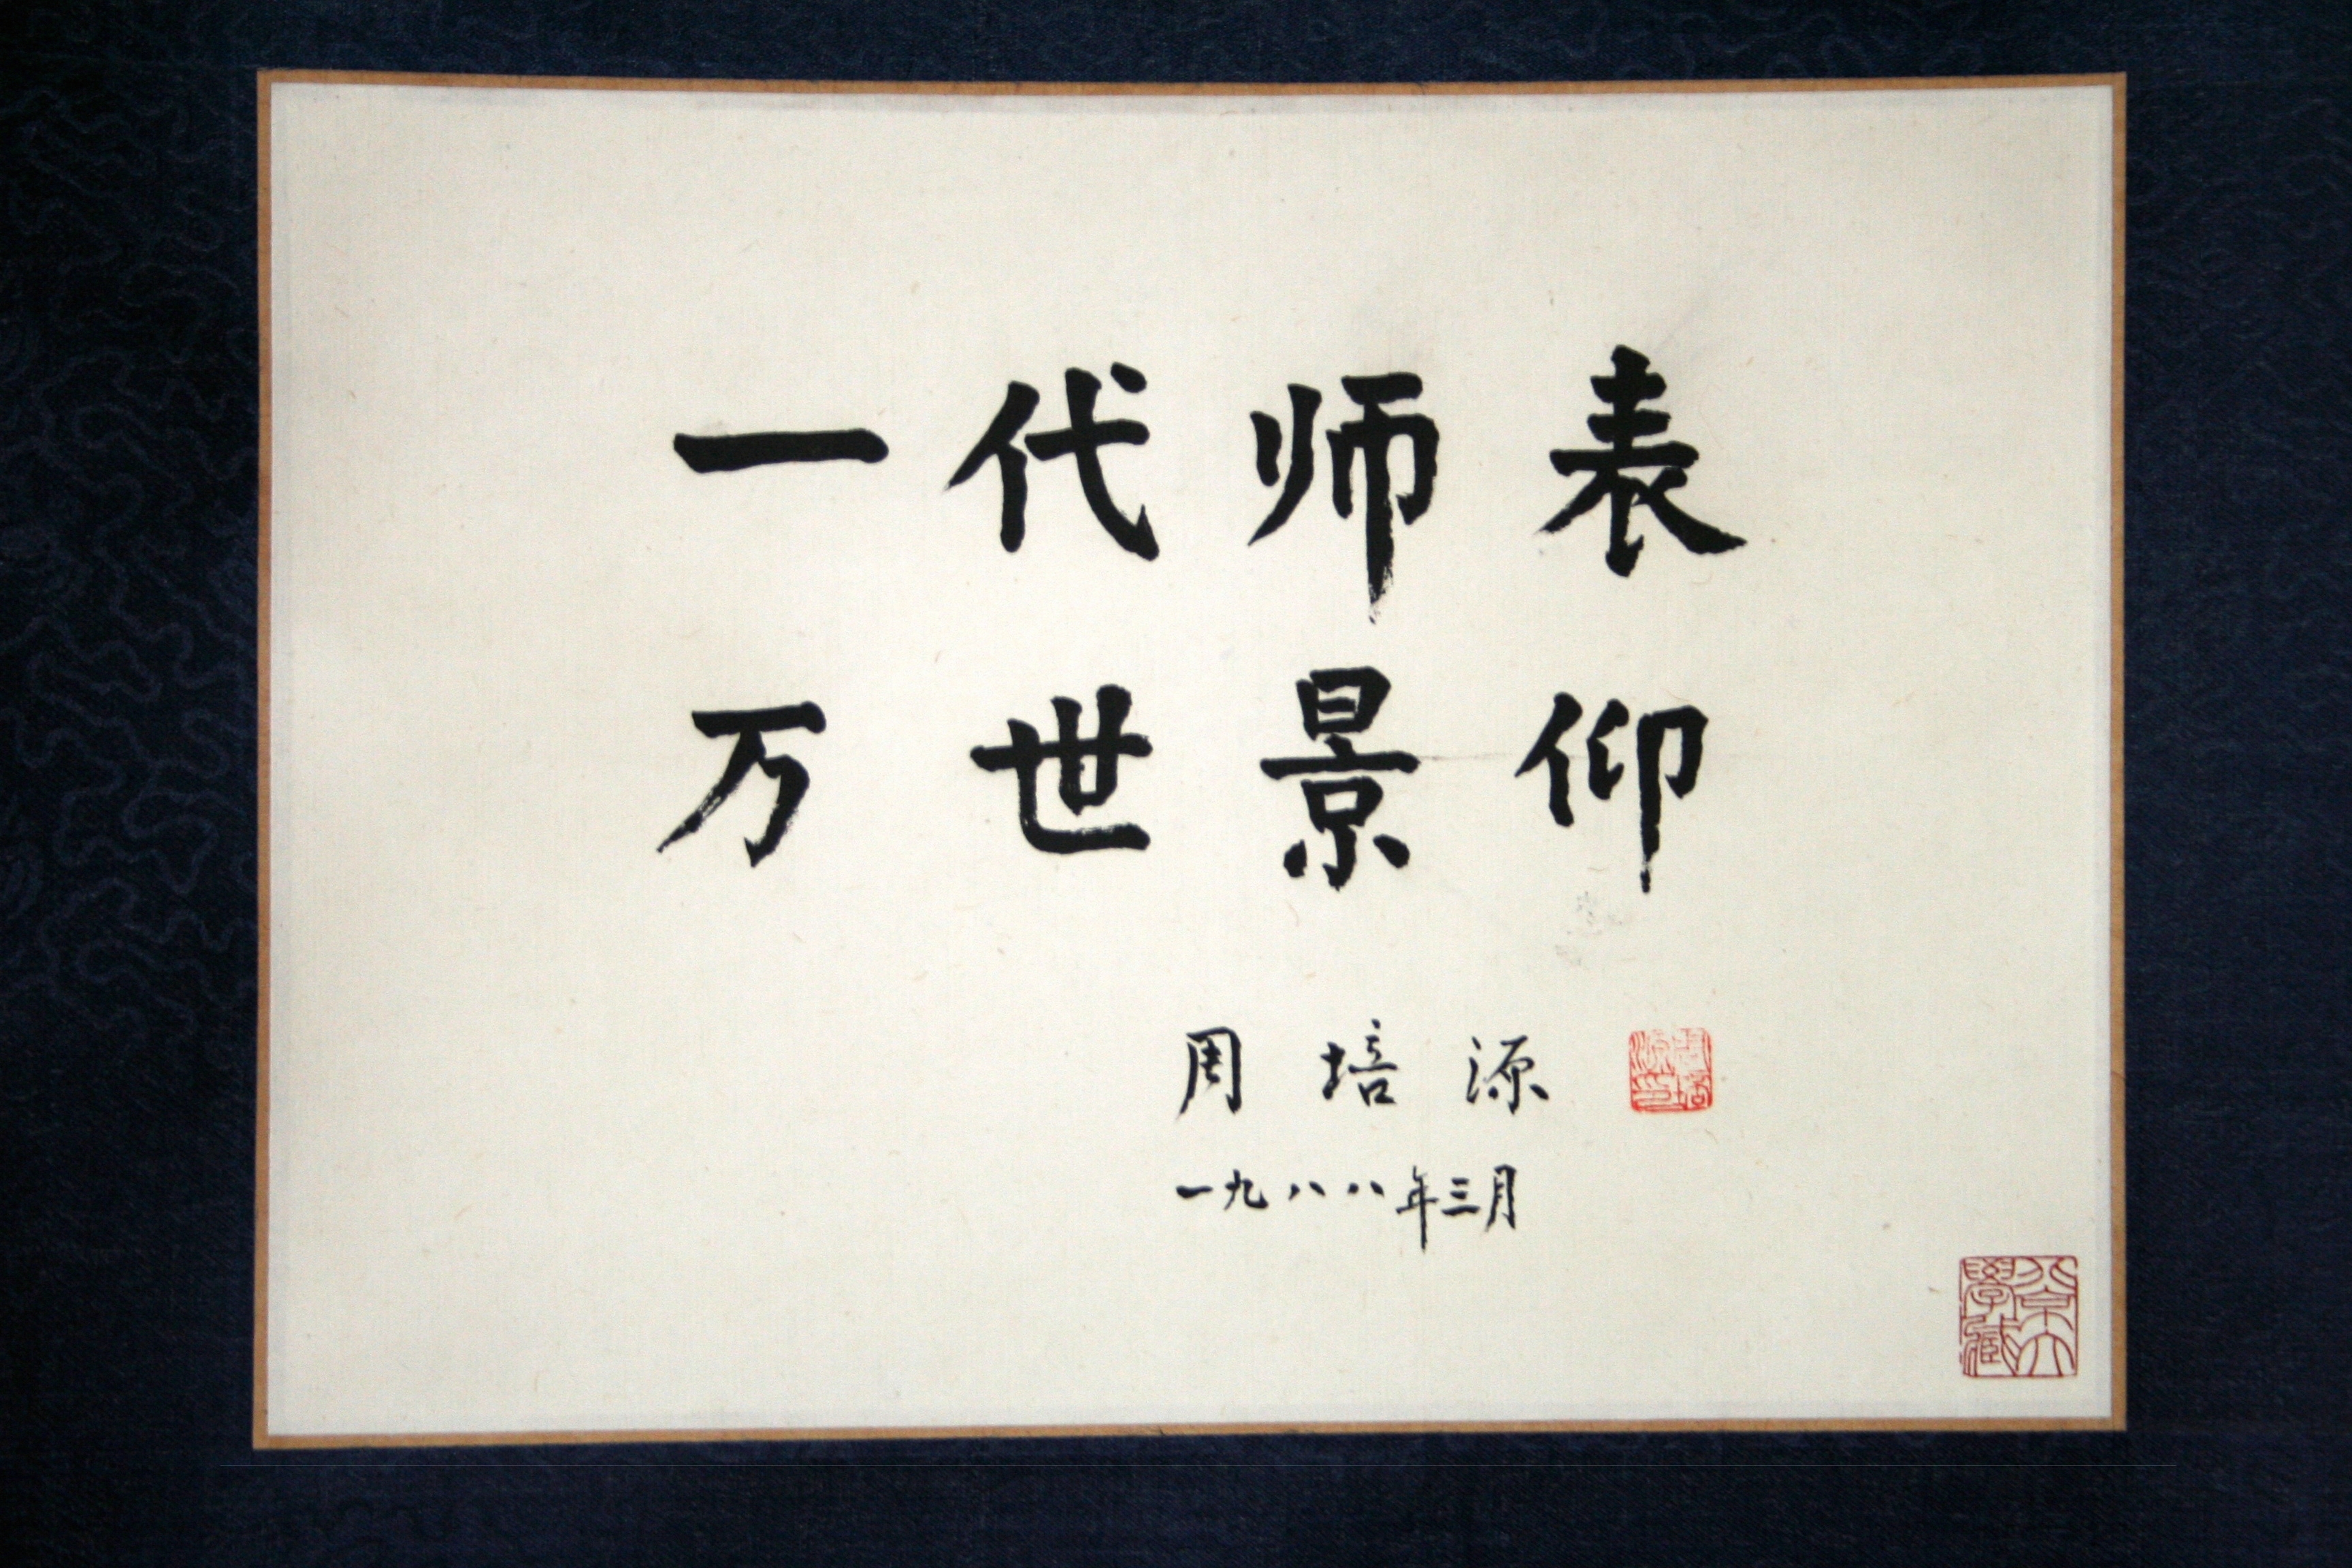 一代师表
万世景仰
周培源
周培源印
一九八八年三月